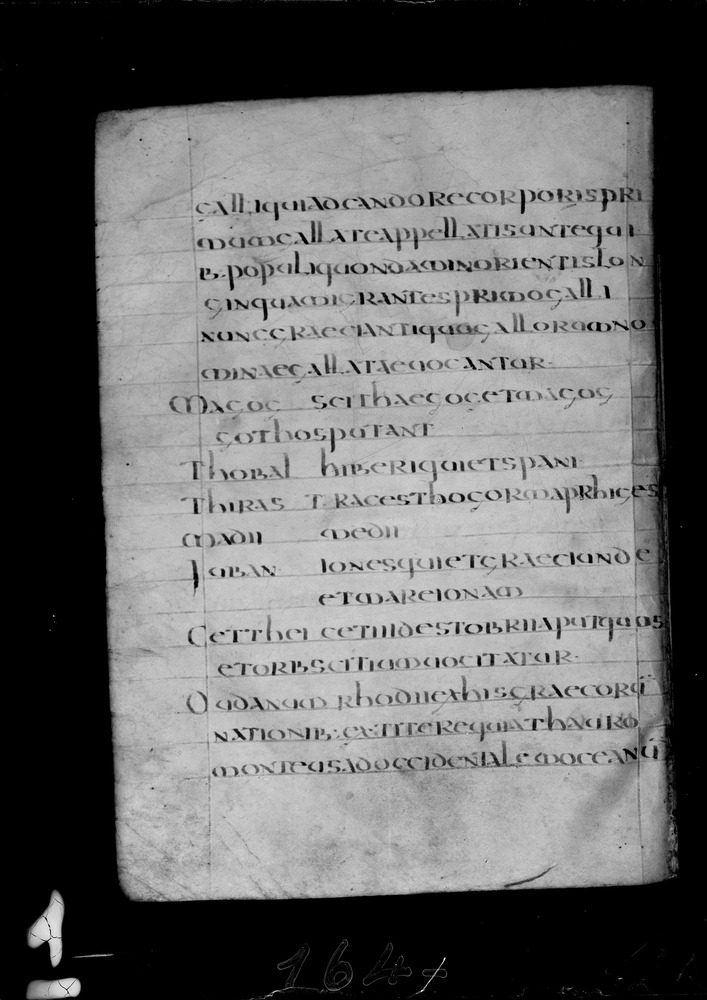 GALLIQUIADCANDORECORPORISPRI
MUMGALLATEAPPELLATISUNTEQUI
B·POPULIQUONDAMINORIENTISLON
GINQUAMIGRANTESPRIMOGALLI
NUNCGRAECIANTIQUOGALLORUMNO
MINAEGALLATAEUOCANTUR·
MAGOG SCITHAEGOGETMAGOG
GOTHOSPUTANT
THOBAL HIBERIQUIETSPANI
THIRAS TRACESTHOGORMAPRHIGES
MADII MEDII
IUBAN IONESQUIETGRAECIUNDE
ETMAREIONAM
CETTHEI CETIIIDESTOBRIIAPUTQUOS
ETORBSCITIUMUOCITATUR·
DUDANUM RHODIIEXHISGRAECORŪ
NATIONIB·EXTITEREQUIATHAURO
MONTEUSADOCCIDENTALEMOCEANŪ
164